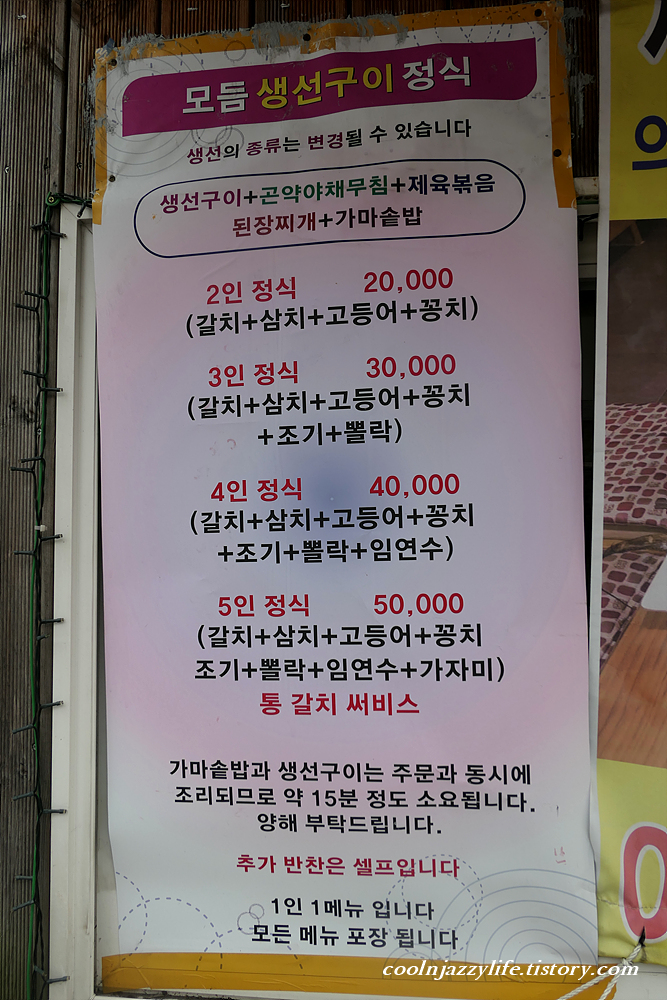 모듬 생선구이 정식
생선의 종류는 변경될 수 있습니다
생선구이+곤약야채무침+제육볶음
된장찌개+가마솥밥
2인 정식 20,000
(갈치+삼치+고등어+꽁치)
3인 정식 30,000
(갈치+삼치+고등어+꽁치
+조기+뽈락)
4인 정식 40,000
(갈치+삼치+고등어+꽁치
+조기+뽈락+임연수)
5인 정식 50,000
(갈치+삼치+고등어+꽁치
조기+뽈락+임연수+가자미)
통 갈치 써비스
가마솥밥과 생선구이는 주문과 동시에
조리되므로 약 15분 정도 소요됩니다.
양해 부탁드립니다.
추가 반찬은 셀프입니다
1인 1메뉴 입니다
모든 메뉴 포장 됩니다
coolnjazzylife.tistory.com